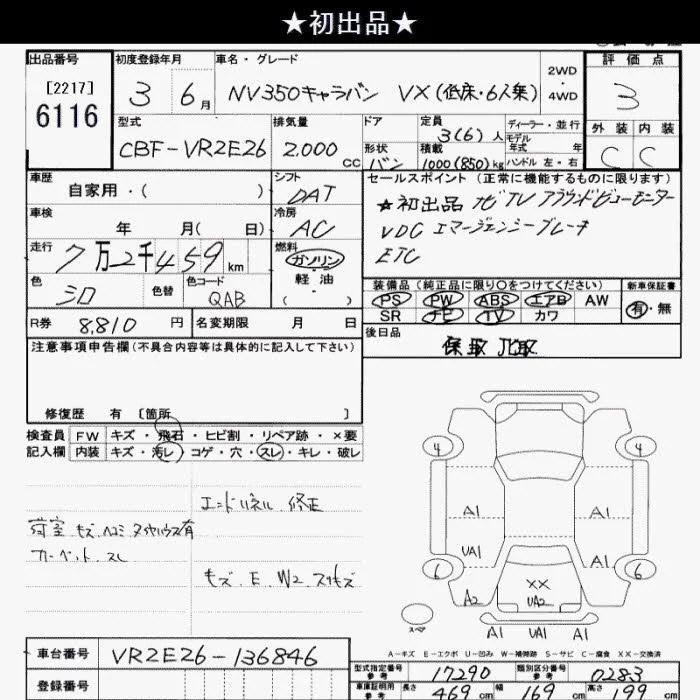 ★初出品★
出品番号 初度登録年月 車名・グレード 評価点
[2217]
6116
3 6月 NV350キャラバン VX(低床・6人乗) 2WD・4WD 3
型式 排気量 ドア 定員 ディーラー・並行 外装 内装
CBF-VR2E26 2,000cc 形状 バン 3(6)人 モデル年式 年 C C
積載 1000(850)kg ハンドル 左・右
車歴 シフト セールスポイント(正常に機能するものに限ります)
自家用・( ) DAT ★初出品 ナビTV アラウンドビューモニター
車検 冷房 VDC エマージェンシーブレーキ
年 月( 日) AC ETC
走行 燃料
7万2千459km ガソリン
軽油
・( )
色 色替 色コード 装備品(純正品に限り○をつけてください) 新車保証書
シロ QAB PS PW ABS エアB AW 有・無
R券 8,810円 名変期限 月 日 SR ナビ TV カワ
注意事項申告欄(不具合内容等は具体的に記入して下さい) 後日品
保取 ナビ取
修復歴 有 [箇所 ]
検査員 FW キズ・飛石・ヒビ割・リペア跡・×要
記入欄 内装 キズ・汚レ・コゲ・穴・スレ・キレ・破レ
エンドパネル 修正
荷室 キズ ヘコミ タイヤハウス有
カーペット スレ
キズ、E、W2 スリキズ
4 4
A1 A1
UA1 A1
6 6
A2 XX
UA2
スペア A1 UA1 A1
A-キズ E-エクボ U-凹み W-補修跡 S-サビ C-腐食 XX-交換済
車台番号 VR2E26-136846
型式指定番号 参考 17290 類別区分番号 参考 0283
登録番号 車庫証明用 参考 長さ 469cm 幅 169cm 高さ 199cm